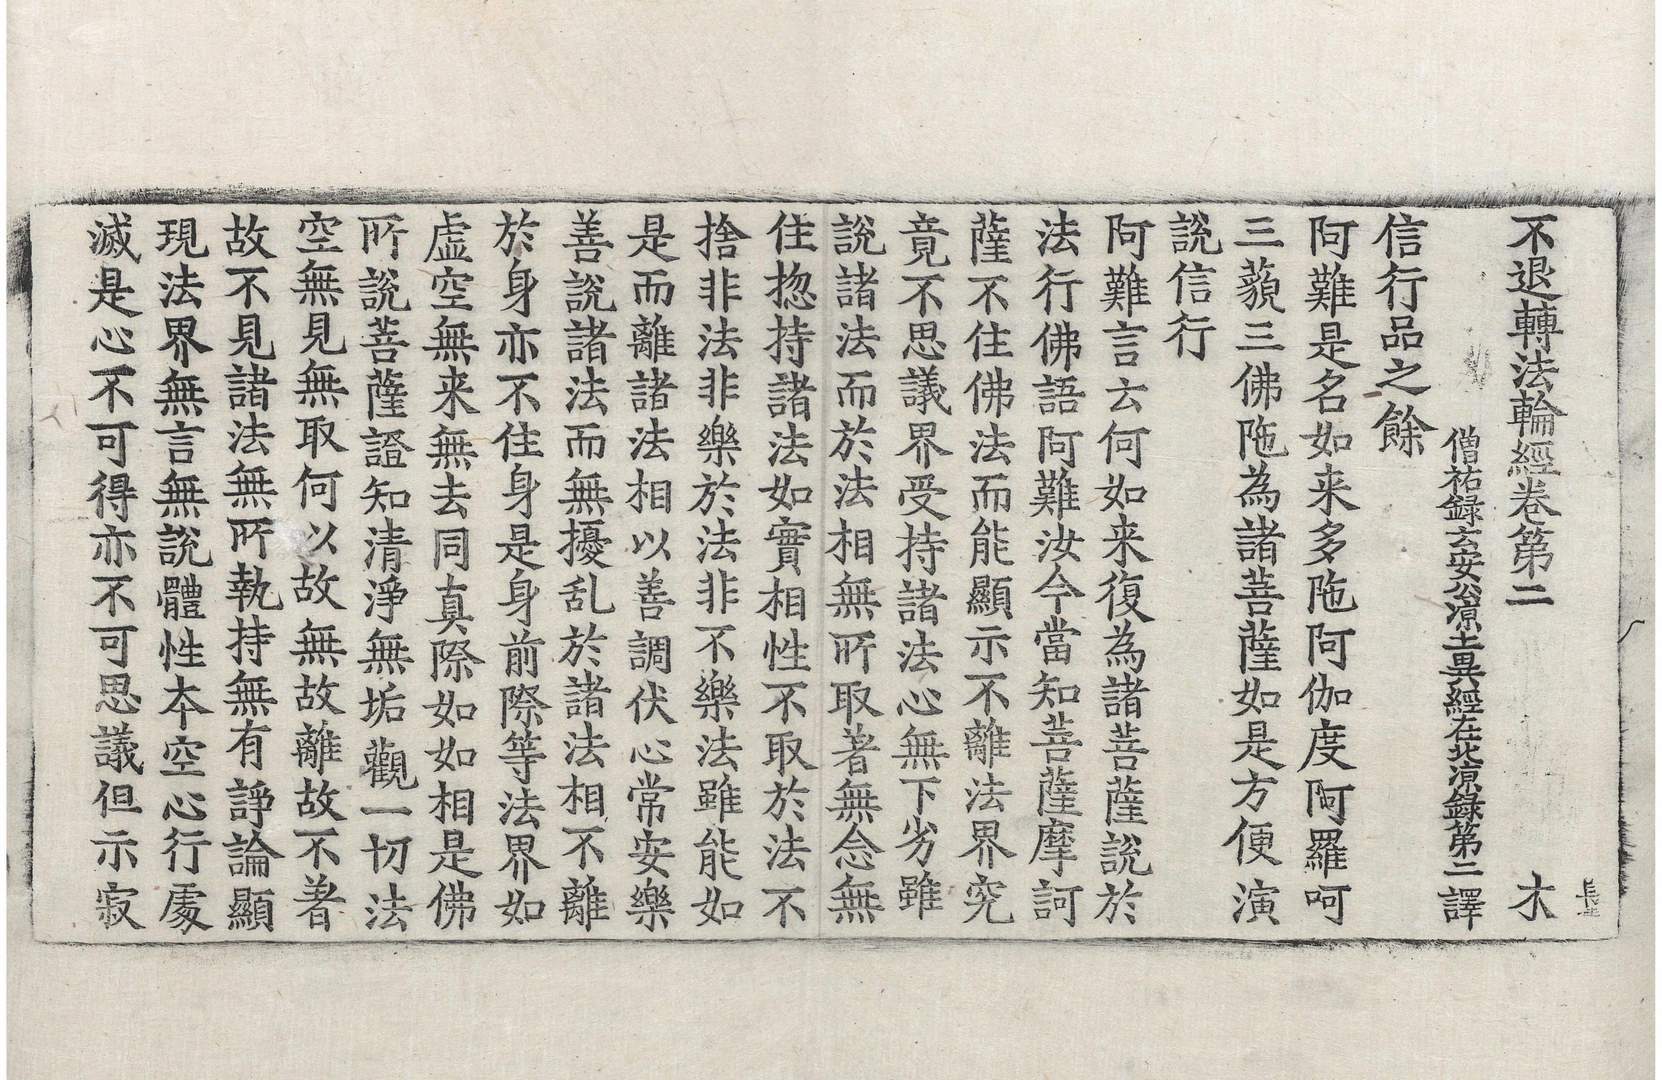 不退轉法輪經卷第二 木
僧祐録云安公涼土異經在北涼録第二譯
信行品之餘
阿難是名如来多陁阿伽度阿羅呵
三藐三佛陁為諸菩薩如是方便演
說信行
阿難言云何如来復為諸菩薩說於
法行佛語阿難汝今當知菩薩摩訶
薩不住佛法而能顯示不離法界究
竟不思議界受持諸法心無下劣雖
說諸法而於法相無所取著無念無
住揔持諸法如實相性不取於法不
捨非法非樂於法非不樂法雖能如
是而離諸法相以善調伏心常安樂
善說諸法而無擾乱於諸法相不離
於身亦不住身是身前際等法界如
虚空無来無去同真際如如相是佛
所說菩薩證知清淨無垢觀一切法
空無見無取何以故無故離故不著
故不見諸法無所執持無有諍論顯
現法界無言無說體性本空心行處
滅是心不可得亦不可思議但示寂